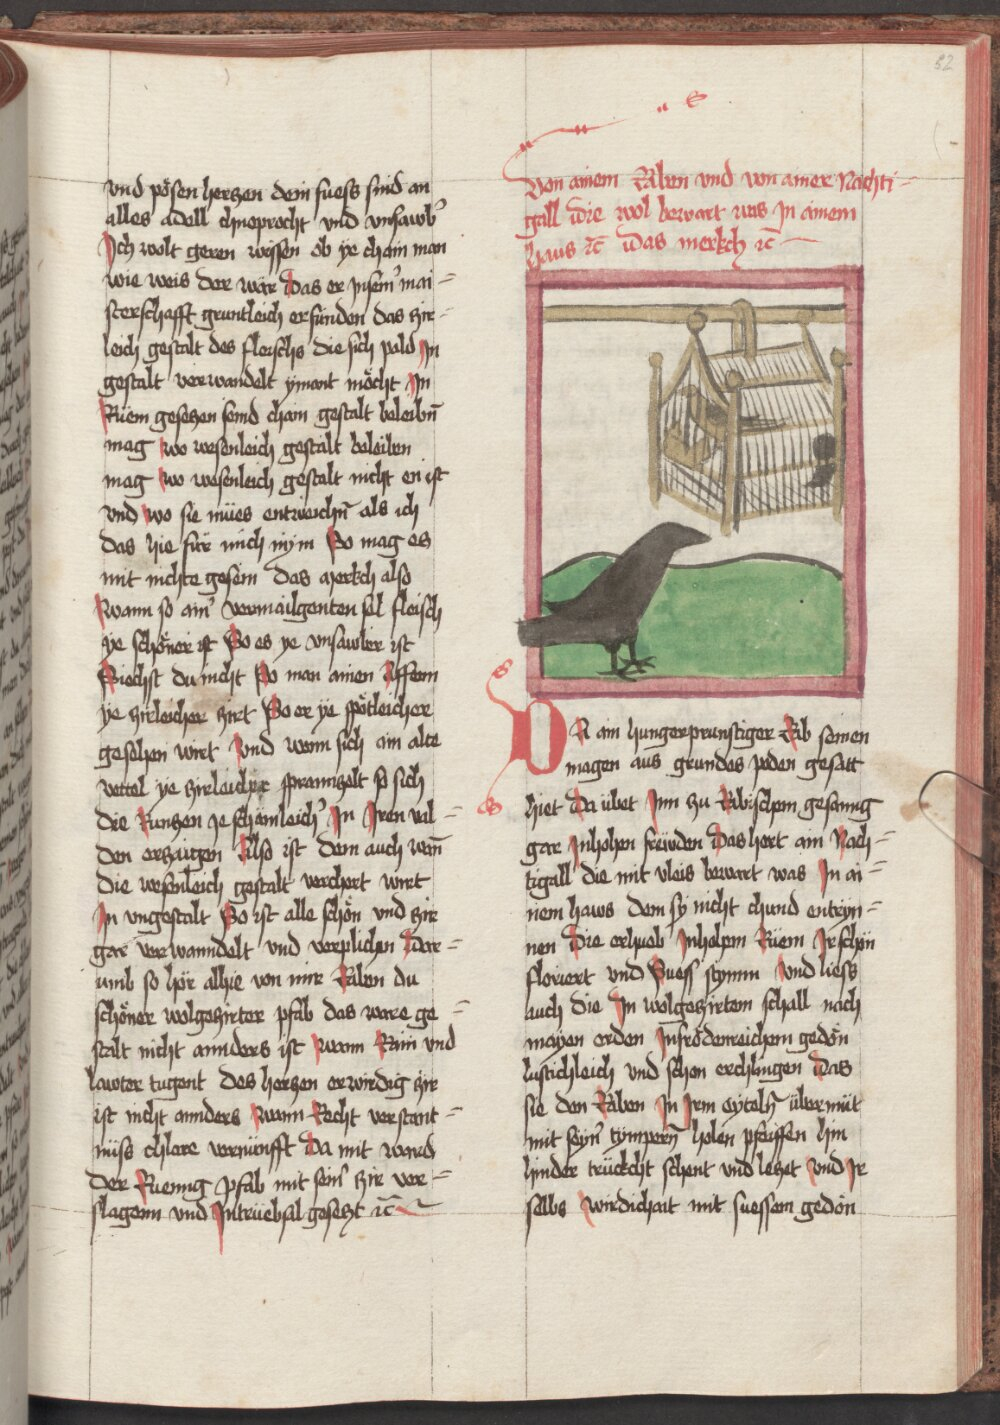 52
vnd pösen herczen dein fuess sind an
alles adell chneprocht vnd vnsawbꝰ
Ich wolt geren wissen ob ye chain man
wie weis der wär Das er Insemꝰ mai=
sterschafft gruntleich erfunden das zir=
leich gestalt des fleischs die sich pald In
gestalt verwandelt ymant möcht In
Rüem gesehen seind chain gestalt beleibn̄
mag wo wesenleich gestalt beleiben
mag wo wesenleich gestalt nicht en ist
vnd wo sie mües entweichn̄ als ich
das hie für mich nym So mag es
mit nichte gesein das merkch also
Wann so ainꝰ vermailgenten sel fleisch
ye schöner ist So es ye vnsawber ist
Siechst du nicht So man ainen Affenn
ye zirleicher zirt So er ye spötleicher
gesehen wirt Vnd wenn sich ain alte
vettel ye zirleicher spranczelt so sich
die Runczen ye schamleichꝰ In Iren val=
den erczaigen Also ist dem auch wan̄
die wesenleich gestalt verchert wirt
In vngestalt So ist alle schön vnd zir
gar verwanndelt vnd verplichen Dar=
umb so hör alhie von mir Raben du
schöner wolgezirter pfab das ware ge=
stalt nicht annders ist Wann Rain vnd
lawter tugent des herczen erwirdig zir
ist nicht annders Wann Recht verstant=
nüss chlare vernünfft Da mit ward
der Ruemig pfab mit seinꝰ zir ver=
slagenn vnd In trüebsal geseczt ꝛc̄
Von ainem Raben vnd von ainer Nachti=
gall die wol bewart was In ainem
haus ꝛc̄ das merkch ꝛc̄
DA ain hungerprunstiger Rab seinen
magen aus grundes poden gesatt
hiet Da übet Inn zu Rabischem gesanng
gar In hohen freüden Das hort ain Nach=
tigall die mit vleis bewart was In ai=
nem haws dem sy nicht chund entryn=
nen Die erhueb In holpm Rüem Ir schön
floriert vnd Suess stymm Vnd liess
auch die In wolgezirtem schall nach
mayen orden In frödenreichem gedön
lustichleich vnd schon erchlingen Das
sie den Raben In Irm eyteln̄ übermüt
mit seynꝰ tympern̄ holen pfeiffen hin
hinder trückcht schent vnd leczet Vnd Ir
selbs wirdichait mit suessem gedön